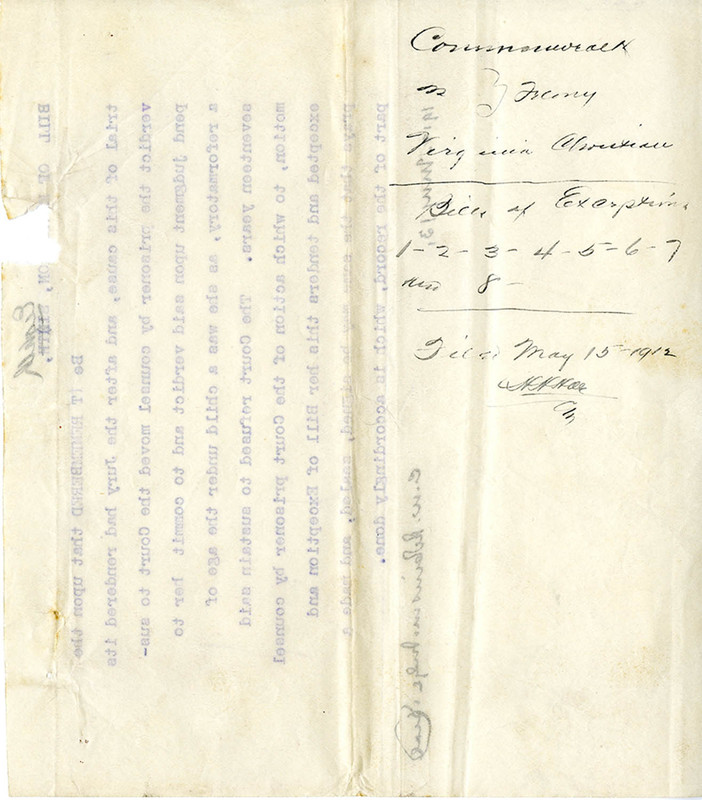 Commonwealth
vs } Felony
Virginia Christian
Bills of Exceptions
1-2-3-4-5-6-7
and 8-
Filed May 15-1912
BILL OF EXCEPTION,
Be IT REMEMBERED that upon the
trial of this cause, and after the Jury had rendered its
verdict the prisoner by counsel moved the Court to sus-
pend judgment upon said verdict and to commit her to
a reformatory, as she was a child under the age of
seventeen years. The Court refused to sustain said
motion, to which action of the Court prisoner by counsel
excepted and tenders this her Bill of Exception and
prays that the same may be signed, sealed, and made a
part of the record, which is accordingly done.